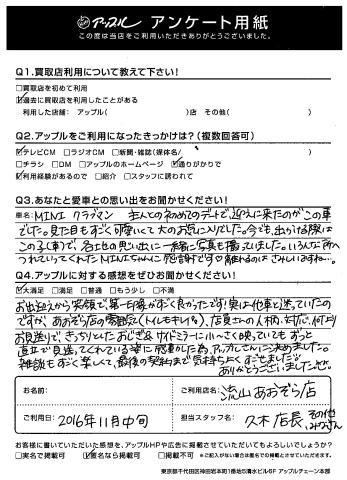 アップル アンケート用紙
この度は当店をご利用いただきありがとうございました。
Q1.買取店利用について教えて下さい！
□買取店を初めて利用
☑過去に買取店を利用したことがある
利用した店舗： アップル( )店 その他( )
Q2.アップルをご利用になったきっかけは？(複数回答可)
☑テレビCM □ラジオCM □新聞・雑誌(媒体名/ )
□チラシ □DM □アップルのホームページ ☑通りがかりで
☑利用経験があるので □紹介 □スタッフに誘われて
Q3.あなたと愛車との思い出をお聞かせください！
車名：MINI クラブマン 主人との初めてのデートで、迎えに来たのがこの車
でした。見た目もすごく可愛いくて大のお気に入りでした。今でも、出かける際は
この子(車)で、各地の思い出に一緒に写真も撮っていました。いろんな所へ
つれていってくれたMINIちゃんに感謝です♡離れるのはさみしいですね…。
Q4.アップルに対する感想をぜひお聞かせください！
☑大満足 □満足 □普通 □もう少し □不満
お出迎えから笑顔で、第一印象がすごく良かったです！実は他車と迷っていたの
ですが、あおぞら店の雰囲気(トイレもキレイ！)、店員さんの人柄、対応、何より
お見送りで、きっちりとしたおじぎ&サイドミラーに小さく映っていてもずっと
直立で見送ってくれている姿に感動したため、アップルさんに決めました。
雑談もすごく楽しくて、最後の契約まで気持ちよくすごせました♡
ありがとうございましたm(__)m
お名前：
ご利用店名： 流山あおぞら店
ご利用日： 2016年11月中旬
担当スタッフ名： 久木店長 その他みなさん
お客様に書いていただいた感想を、アップルHPや広告に掲載させていただいてもよろしいでしょうか？
□実名で掲載可 ☑匿名なら掲載可 □掲載不可 ※ご記入がない場合は匿名での掲載とさせていただきます。
東京都千代田区神田岩本町1番地5清水ビル6F アップルチェーン本部